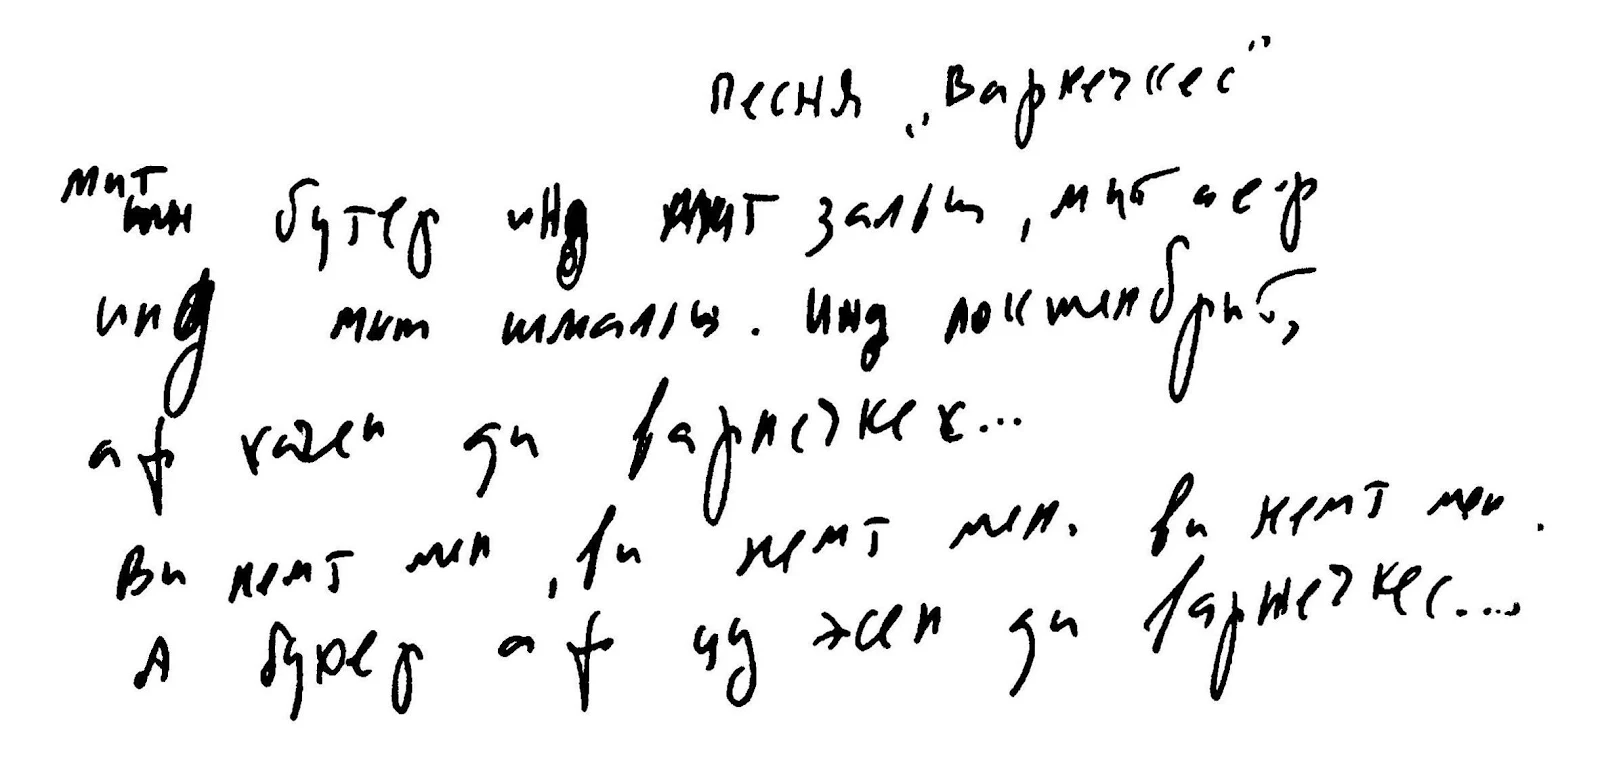 Песня „Варнечкес"
мит бутер инд мит залци, мит аер
инд мит шмалц. Инд локшенбрит,
аф качен ди варнечкех...
Ви немт мен, ви немт мен. Ви немт мен.
А бухер аф цу эсен ди варнечкес...